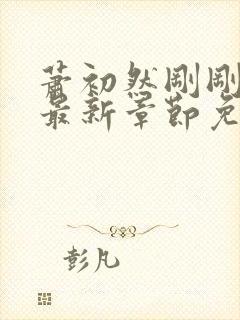 萧初然刚刚
最新章节免
彭凡